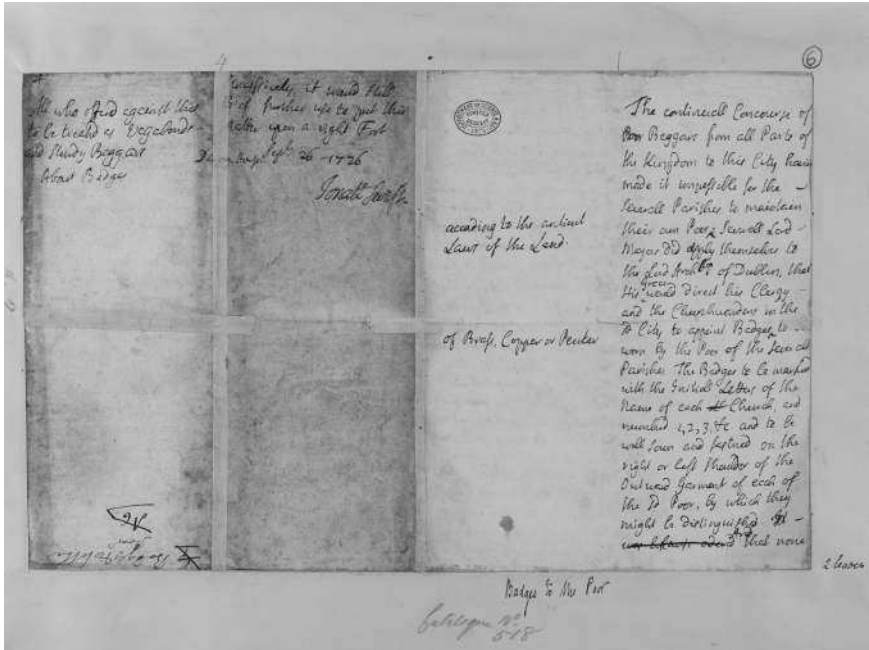 4
1
6
4
All who offend against this
to be treated as Vagabonds
and Sturdy Beggars
About Badges
it would still
be of further use to put this
matter upon a right Foot
Sept 26 - 1726
Jonath Swift
according to the antient
Laws of the Land.
of Brass, Copper or Peuter
The continuall Concourse of
Poor Beggars from all Parts of
the Kingdom to this City having
made it impossible for the
severall Parishes to maintain
their own Poor, Severall Lord
Mayors did apply themselves to
the Lord ArchBp of Dublin, that
His Grace would direct his Clergy
and the Churchwardens in the
sd City to appoint Badges to
worn by the Poor of the severall
Parishes The Badges to be marked
with the Initiall Letters of the
Name of each Church, and
numbred 1, 2, 3, &c and to be
well sown and fastned on the
right or left Shoulder of the
Outward Garment of each of
the sd Poor, by which they
might be distinguished
and that none
2 leaves
Badges to the Poor
Catalogue No
518